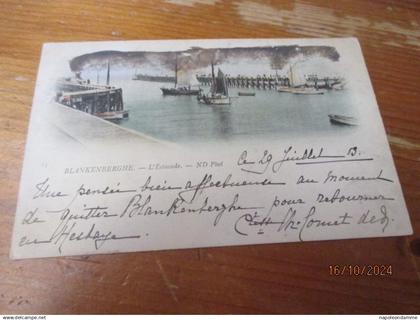 BLANKENBERGHE. — L'Estacade. — ND Phot
Ce 29 Juillet 13.
Une pensée bien affectueuse au moment
de quitter Blankenberghe pour retourner
en Hesbaye
16/10/2024
www.napoleondamme.com